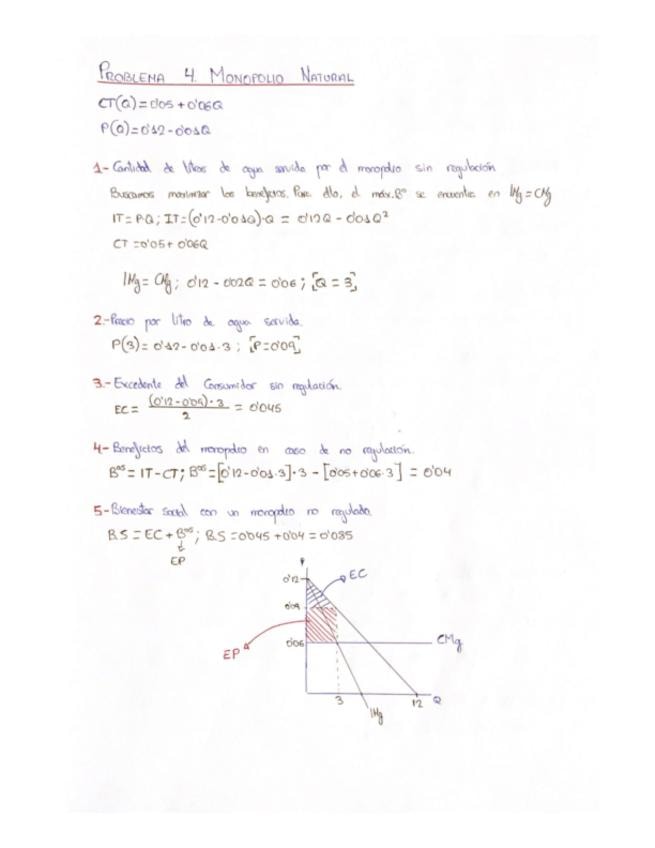 PROBLEMA 4. MONOPOLIO NATURAL
CT(Q) = 0'05 + 0'06Q
P(Q) = 0'12 - 0'01Q
1- Cantidad de litros de agua servida por el monopolio sin regulación
Buscamos maximizar los beneficios. Para ello, el máx. Bº se encuentra en IMg = CMg
IT = P·Q ; IT = (0'12 - 0'01Q)·Q = 0'12Q - 0'01Q²
CT = 0'05 + 0'06Q
IMg = CMg ; 0'12 - 0'02Q = 0'06 ; [Q = 3]
2.- Precio por litro de agua servida.
P(3) = 0'12 - 0'01·3 ; [P = 0'09]
3.- Excedente del Consumidor sin regulación.
EC = (0'12 - 0'09)·3 / 2 = 0'045
4- Beneficios del monopolio en caso de no regulación.
Bºs = IT - CT ; Bºs = [0'12 - 0'01·3]·3 - [0'05 + 0'06·3] = 0'04
5- Bienestar Social con un monopolio no regulado.
B.S = EC + Bºs ; B.S = 0'045 + 0'04 = 0'085
EP
P
0'12
EC
0'09
0'06
CMg
EP
3
12
Q
IMg